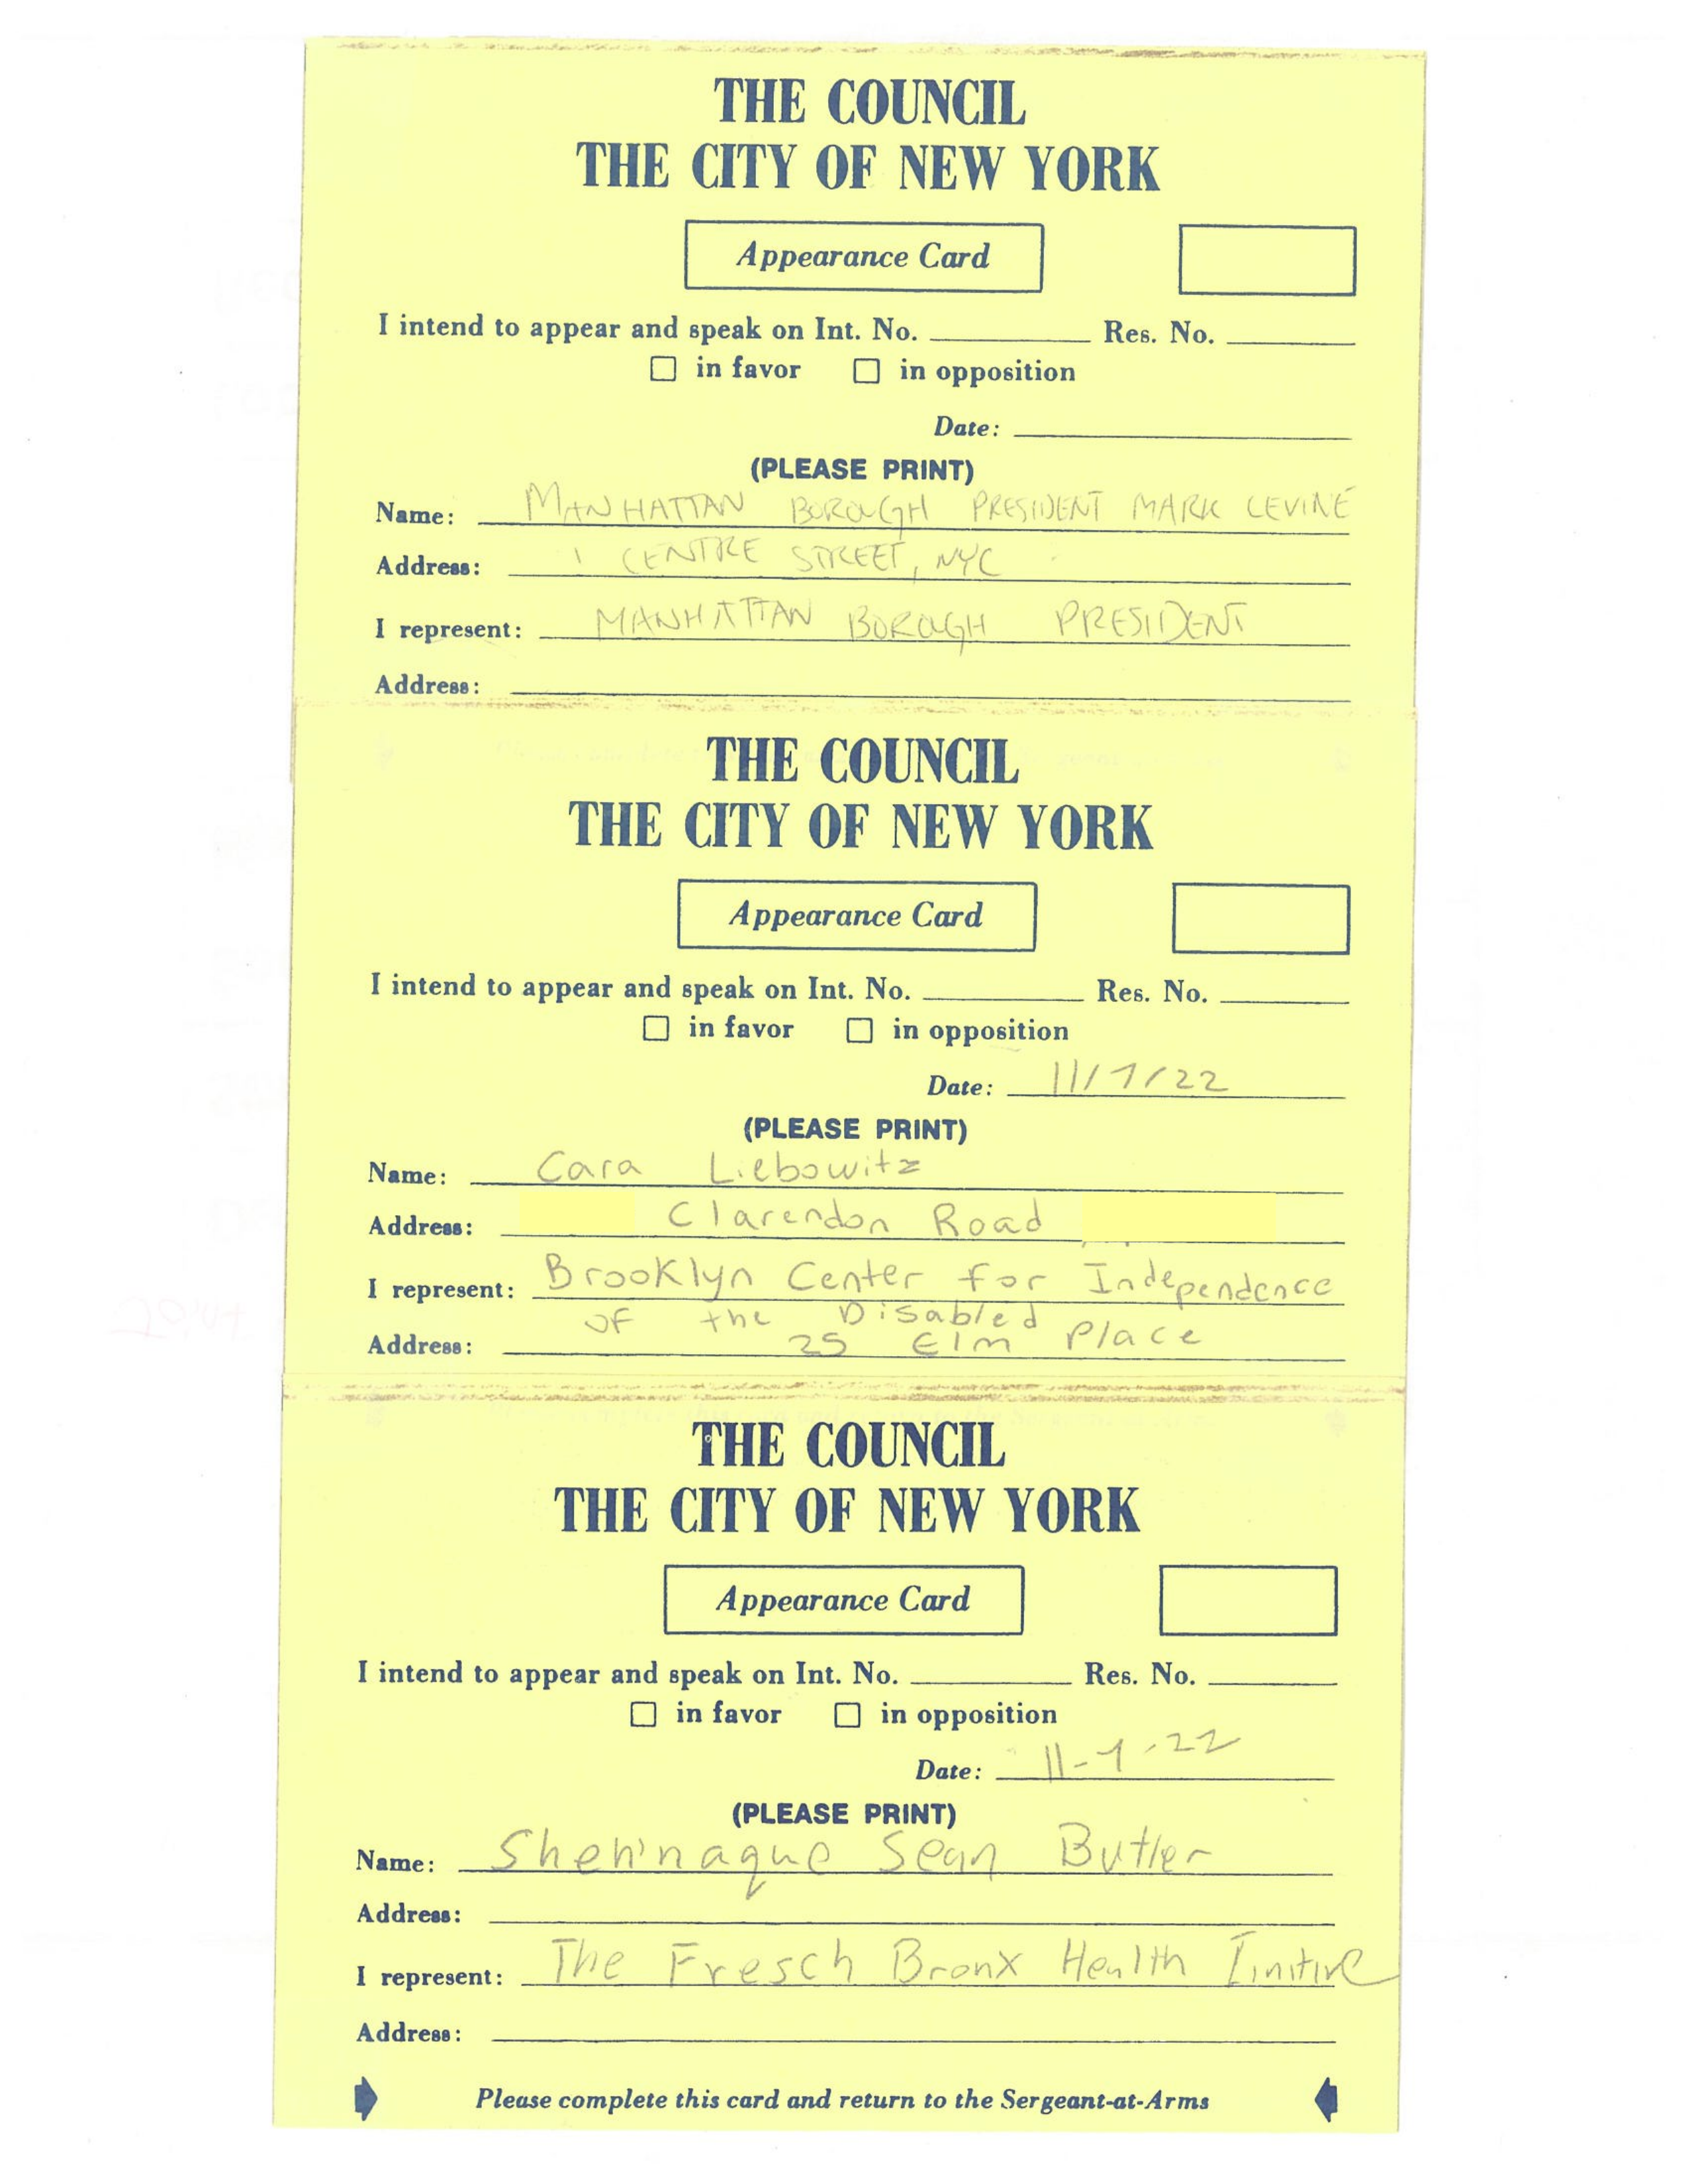 THE COUNCIL
THE CITY OF NEW YORK
Appearance Card
I intend to appear and speak on Int. No. ________ Res. No. ________
☐ in favor ☐ in opposition
Date: ________
(PLEASE PRINT)
Name: MANHATTAN BOROUGH PRESIDENT MARK LEVINE
Address: 1 CENTRE STREET, NYC
I represent: MANHATTAN BOROUGH PRESIDENT
Address: ________
THE COUNCIL
THE CITY OF NEW YORK
Appearance Card
I intend to appear and speak on Int. No. ________ Res. No. ________
☐ in favor ☐ in opposition
Date: 11/1/22
(PLEASE PRINT)
Name: Cara Liebowitz
Address: Clarendon Road
I represent: Brooklyn Center for Independence
of the Disabled
Address: 25 Elm Place
THE COUNCIL
THE CITY OF NEW YORK
Appearance Card
I intend to appear and speak on Int. No. ________ Res. No. ________
☐ in favor ☐ in opposition
Date: 11-1-22
(PLEASE PRINT)
Name: Sheh'naque Sean Butler
Address: ________
I represent: The Fresch Bronx Health
Address: ________
Please complete this card and return to the Sergeant-at-Arms